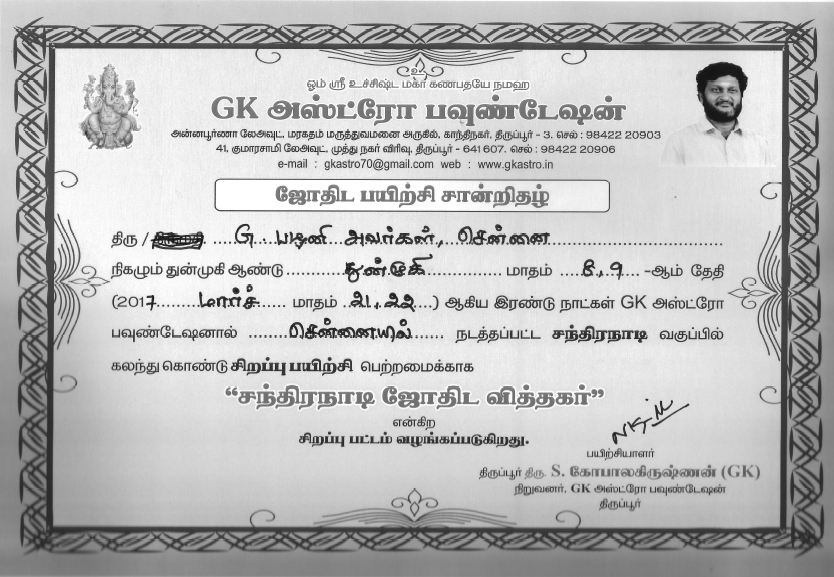 ஓம் ஸ்ரீ உச்சிஷ்ட மகா கணபதயே நமஹ
GK அஸ்ட்ரோ பவுண்டேஷன்
அன்னபூர்ணா லேஅவுட், மரகதம் மருத்துவமனை அருகில், காந்திநகர், திருப்பூர் - 3. செல் : 98422 20903
41, குமாரசாமி லேஅவுட், முத்து நகர் விரிவு, திருப்பூர் - 641 607. செல் : 98422 20906
e-mail : gkastro70@gmail.com web : www.gkastro.in
ஜோதிட பயிற்சி சான்றிதழ்
திரு / G. பழனி அவர்கள், சென்னை
நிகழும் துன்முகி ஆண்டு துன்முகி மாதம் 8, 9 -ஆம் தேதி
(2017 மார்ச் மாதம் 21, 22) ஆகிய இரண்டு நாட்கள் GK அஸ்ட்ரோ
பவுண்டேஷனால் சென்னையில் நடத்தப்பட்ட சந்திரநாடி வகுப்பில்
கலந்து கொண்டு சிறப்பு பயிற்சி பெற்றமைக்காக
“சந்திரநாடி ஜோதிட வித்தகர்”
என்கிற
சிறப்பு பட்டம் வழங்கப்படுகிறது.
பயிற்சியாளர்
திருப்பூர் திரு. S. கோபாலகிருஷ்ணன் (GK)
நிறுவனர், GK அஸ்ட்ரோ பவுண்டேஷன்
திருப்பூர்